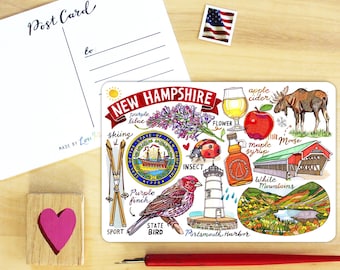 Post Card
to
NEW HAMPSHIRE
apple
cider
purple
lilac
FLOWER
skiing
Moose
maple
syrup
INSECT
White
Mountains
Purple
finch
SPORT
STATE
BIRD
Portsmouth Harbor